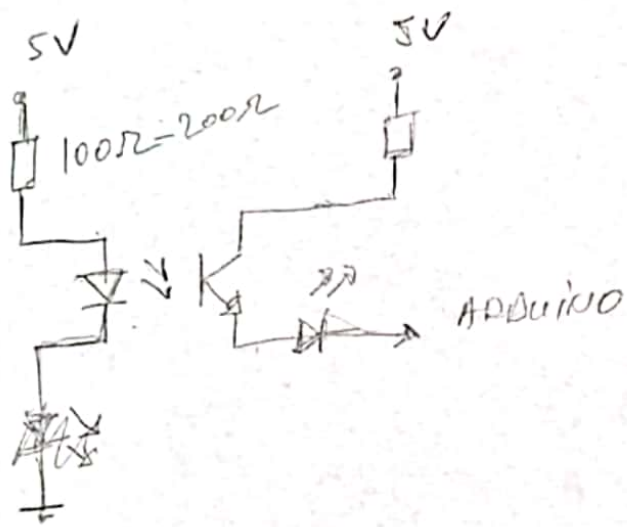 5V
5V
100Ω-200Ω
ARDUiNO